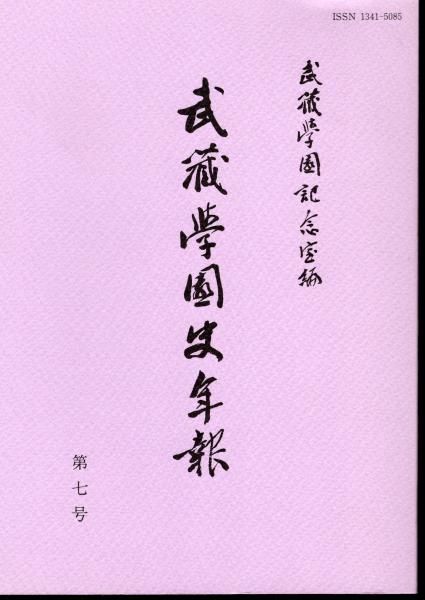 ISSN 1341-5085
武蔵學園記念室編
武蔵學園史年報
第七号